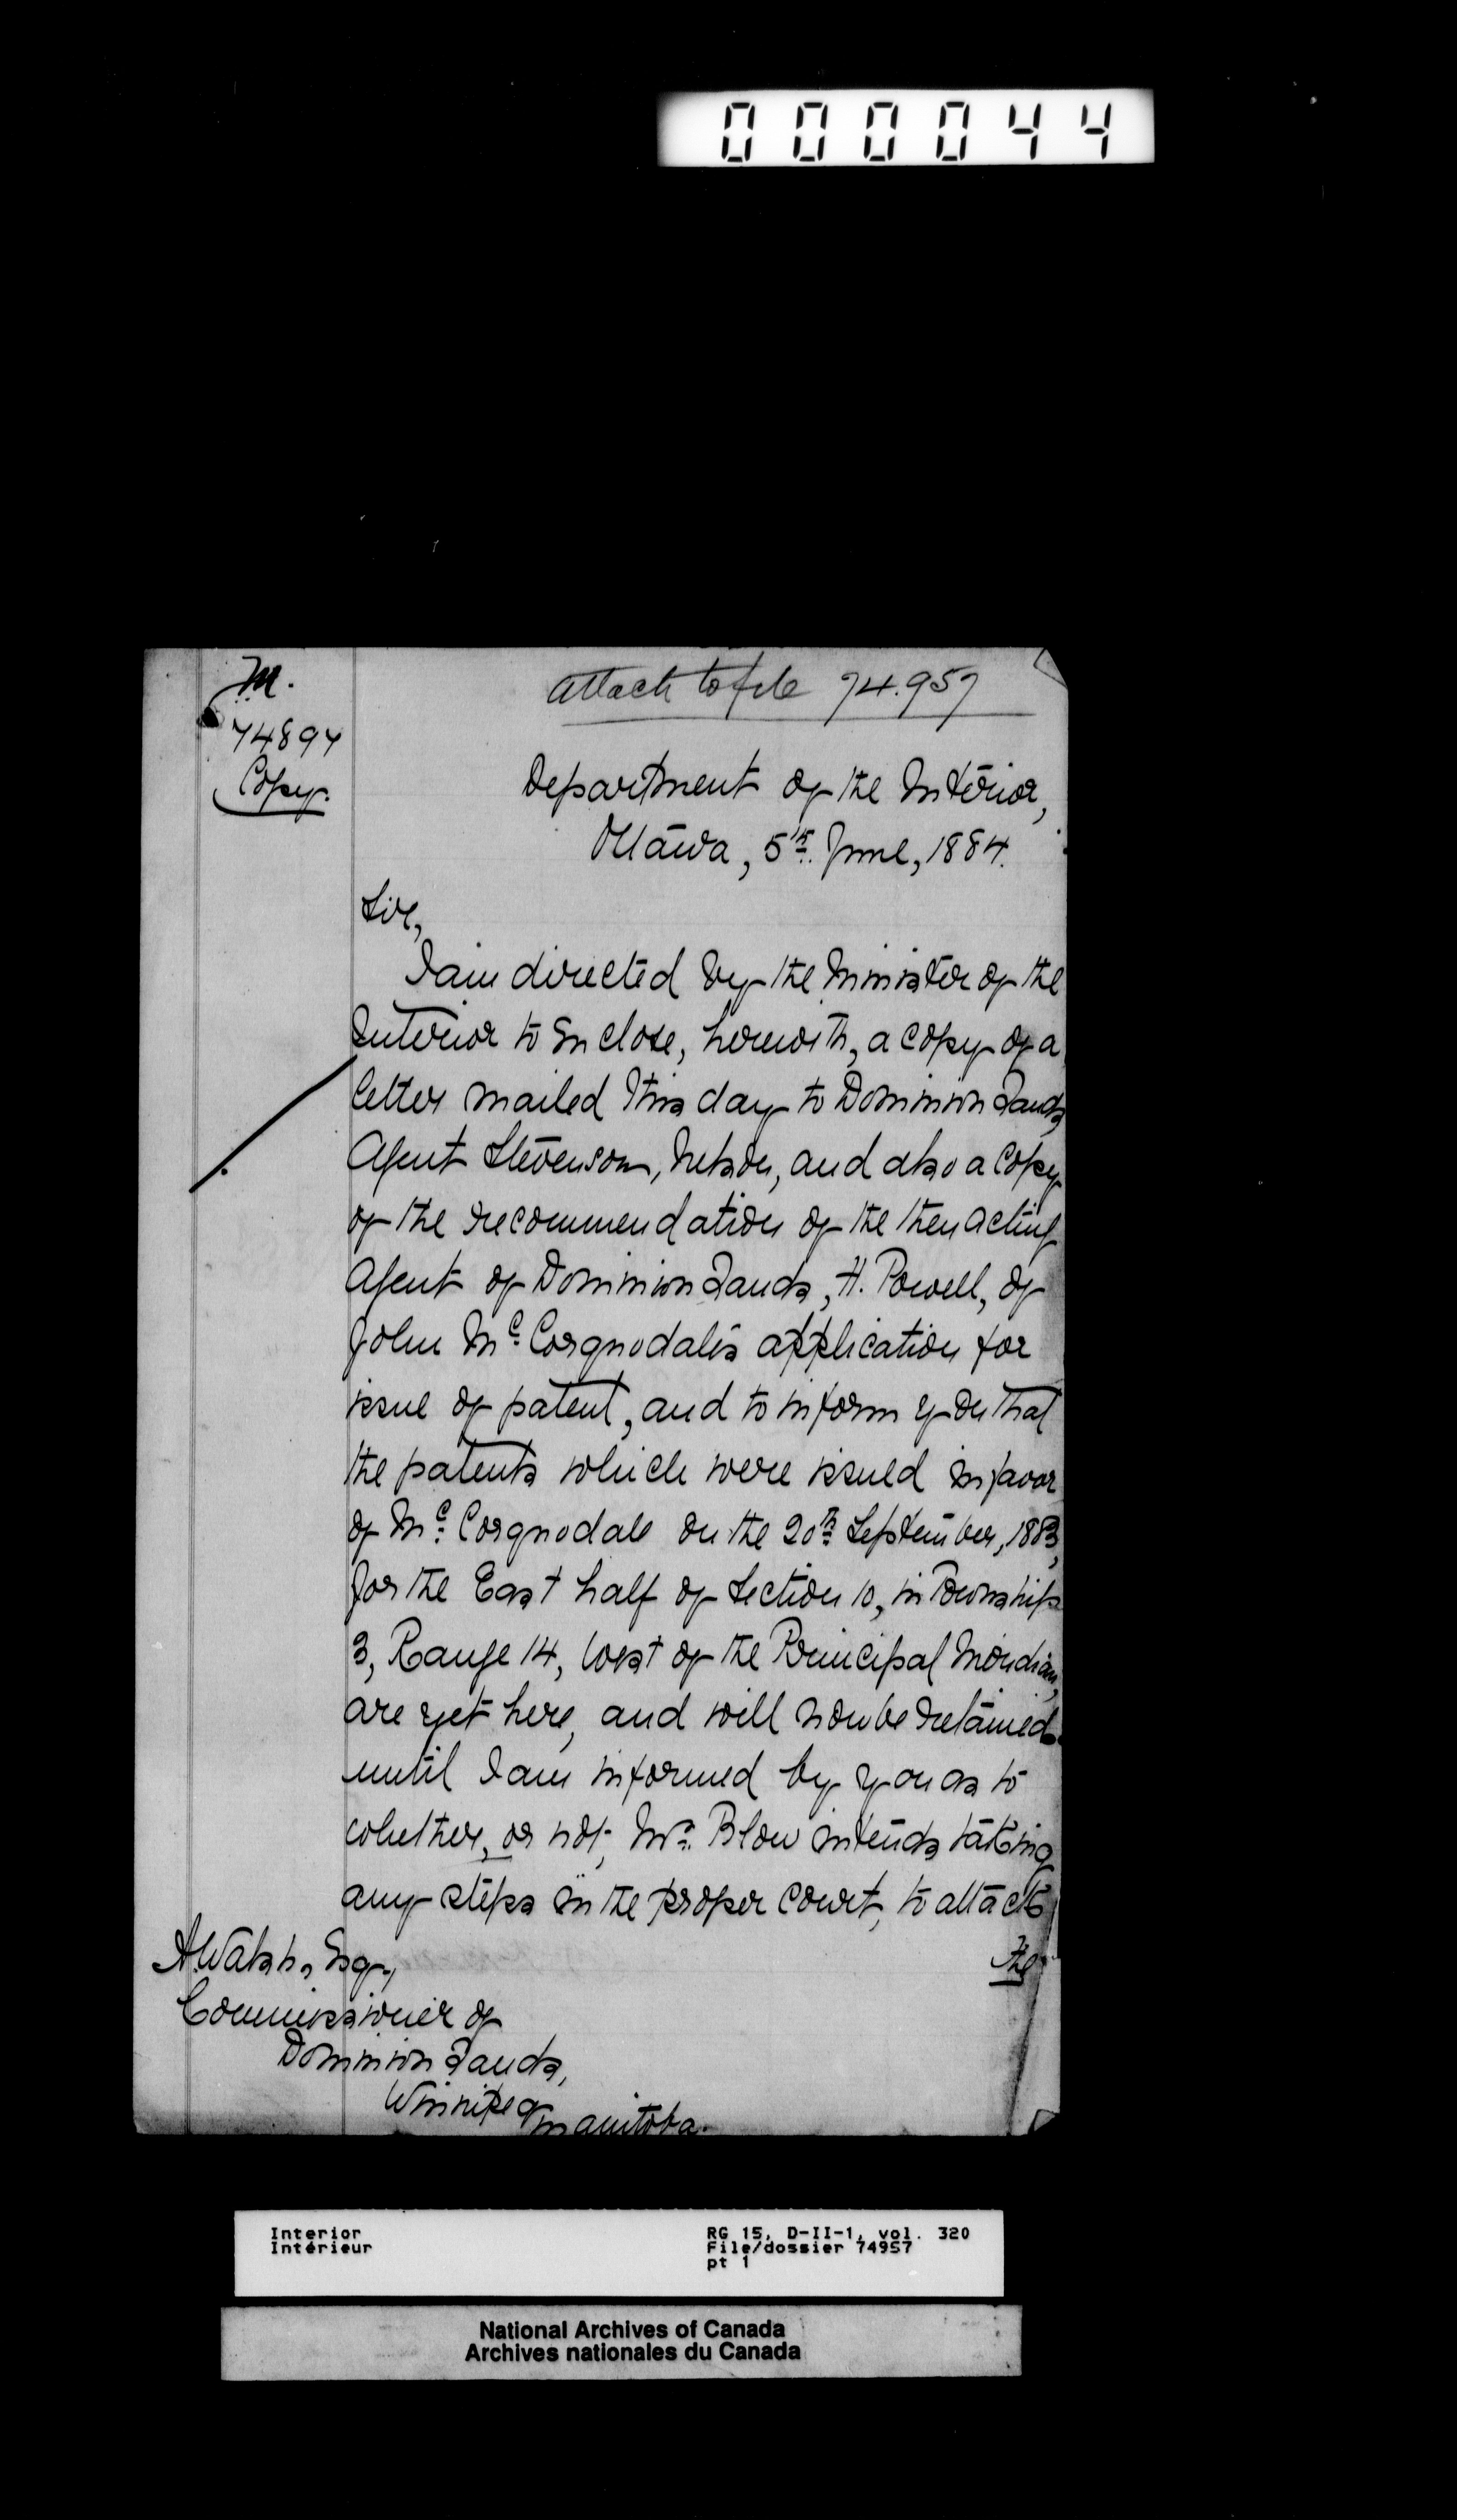 000044
M.
74897
Copy.
attach to file 74.957
Department of the Interior,
Ottawa, 5th. June, 1884.
Sir,
I am directed by the Minister of the
Interior to enclose, herewith, a copy of a
letter mailed this day to Dominion Lands
Agent Stevenson, Nelson, and also a copy
of the recommendation of the then acting
Agent of Dominion Lands, H. Powell, of
John Mc. Corquodale's application for
issue of patent, and to inform you that
the patents which were issued in favor
of Mc. Corquodale on the 20th September, 1883,
for the East half of Section 10, in Township
3, Range 14, West of the Principal Meridian,
are yet here, and will now be retained
until I am informed by you as to
whether, or not, Mr. Blow intends taking
any steps in the proper court, to attack
the
A. Walsh, Esq.,
Commissioner of
Dominion Lands,
Winnipeg
Manitoba.
Interior
Intérieur
RG 15, D-II-1, vol. 320
File/dossier 74957
pt 1
National Archives of Canada
Archives nationales du Canada